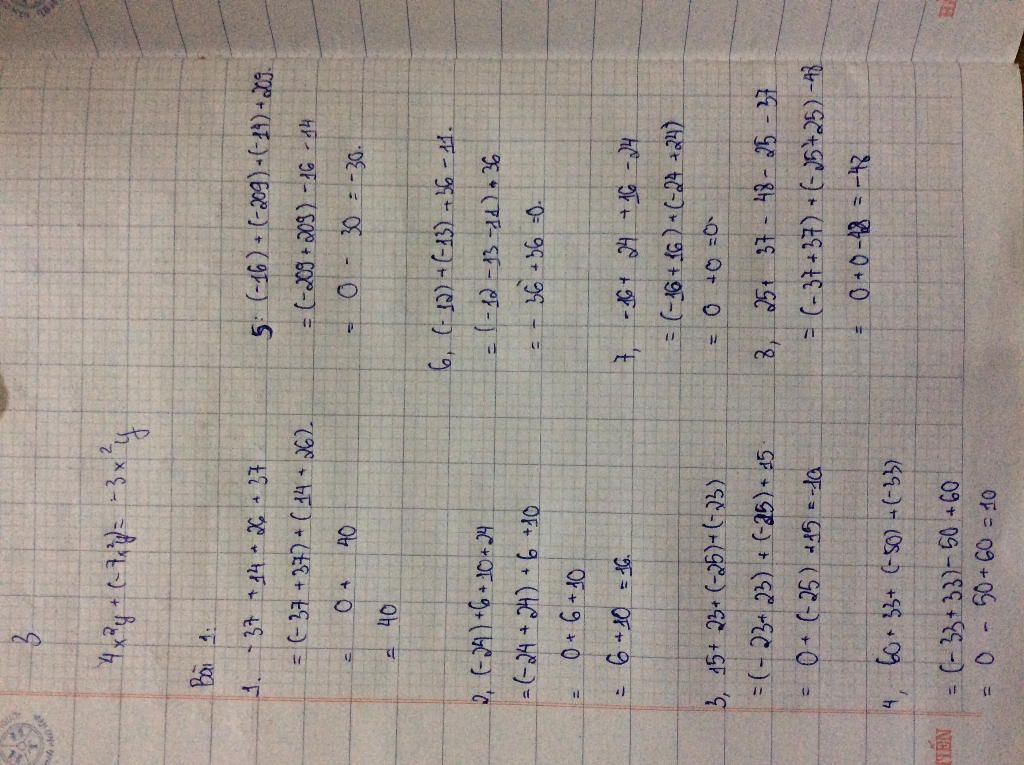 3
4x²y + (-7x²y) = -3x²y
Bài 1:
1. -37 + 14 + 26 + 37
= (-37 + 37) + (14 + 26).
= 0 + 40
= 40
2, (-24) + 6 + 10 + 24
= (-24 + 24) + 6 + 10
= 0 + 6 + 10
= 6 + 10 = 16.
3, 15 + 23 + (-25) + (-23)
= (-23 + 23) + (-25) + 15
= 0 + (-25) + 15 = -10
4, 60 + 33 + (-50) + (-33)
= (-33 + 33) - 50 + 60
= 0 - 50 + 60 = 10
5: (-16) + (-209) + (-14) + 209.
= (-209 + 209) - 16 - 14
= 0 - 30 = -30.
6, (-12) + (-13) + 36 - 11.
= (-12 - 13 - 11) + 36
= -36 + 36 = 0.
7, -16 + 24 + 16 - 24
= (-16 + 16) + (-24 + 24)
= 0 + 0 = 0
8, 25 + 37 - 48 - 25 - 37
= (-37 + 37) + (-25 + 25) - 48
= 0 + 0 - 48 = -48
TIẾN